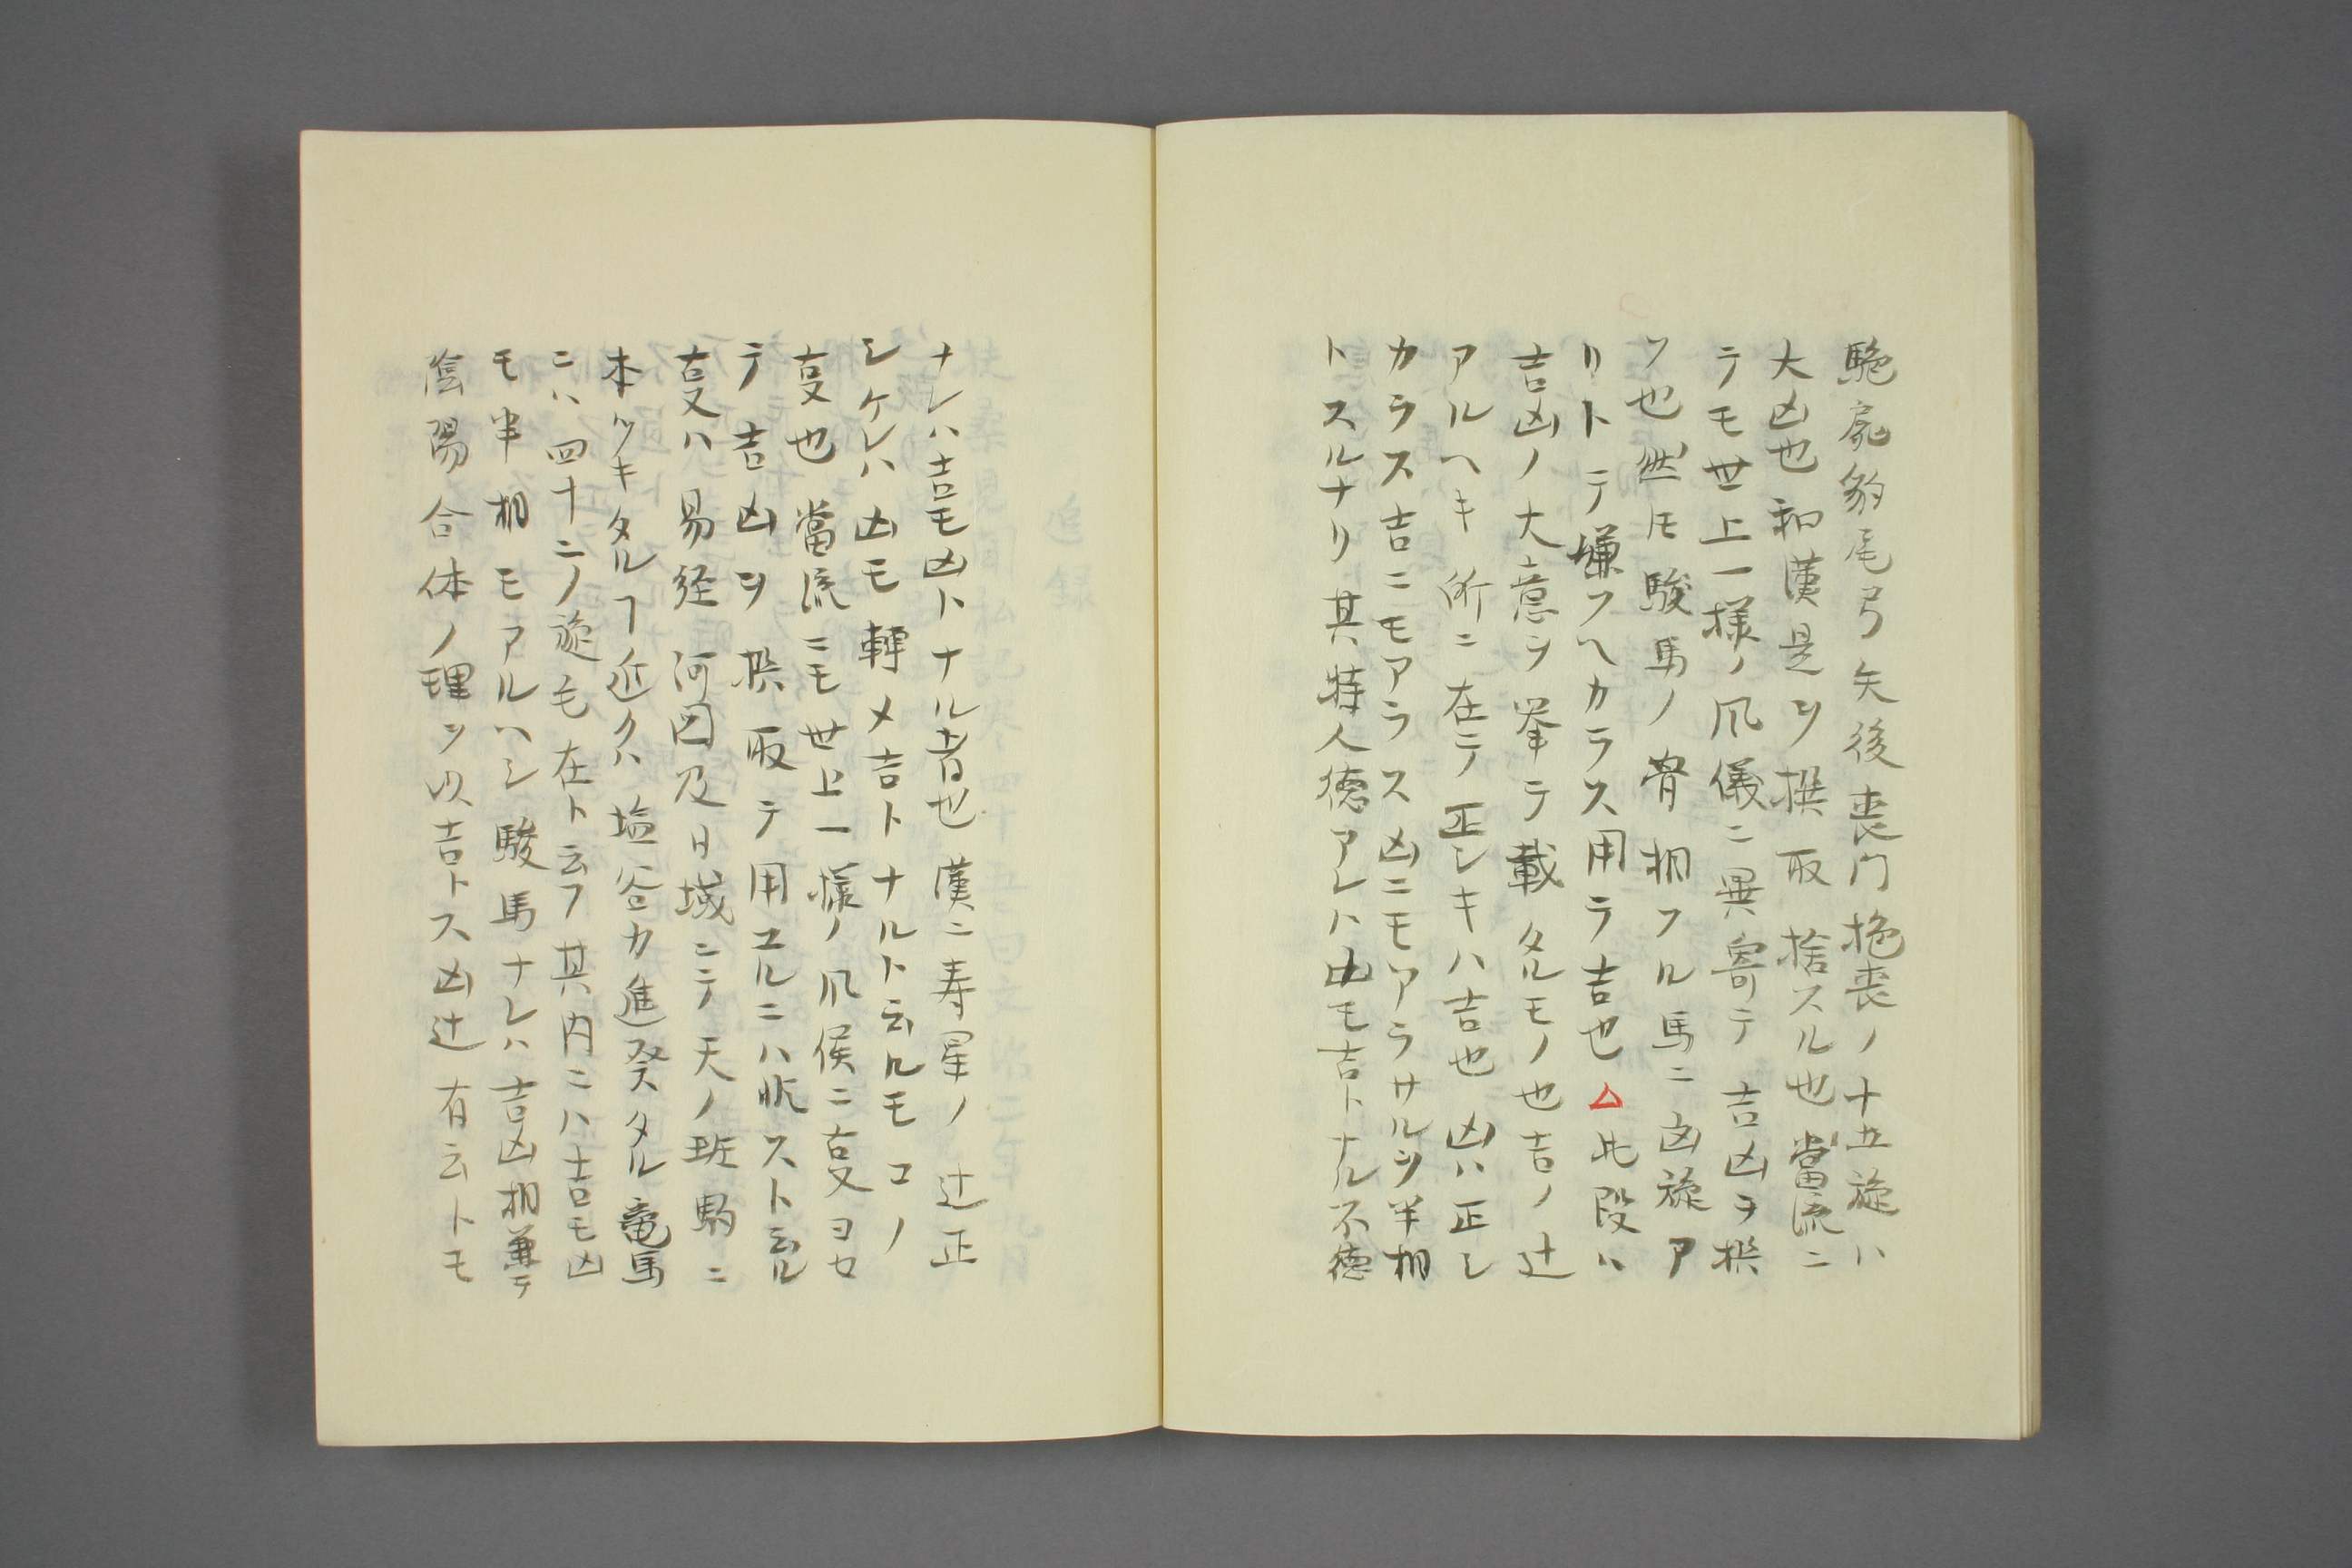 駞扅豹尾弓矢後喪門抱喪ノ十五旋ハ
大凶也和漢是ヲ撰取捨スル也當流ニ
テモ世上一様ノ凨儀ニ異寄テ吉凶ヲ撰
フ也然𪜈駿馬ノ骨相フル馬ニ凶旋ア
リトテ嫌フヘカラス用ラ吉也△此段ハ
吉凶ノ大意ヲ挙テ載タルモノ也吉ノ辻
アルヘキ所ニ在テ正シキハ吉也凶ハ正シ
カラス吉ニモアラス凶ニモアラサルヲ半相
トスルナリ其特人徳アレハ凶モ吉トナル不徳
ナレハ吉モ凶トナル者也漢ニ寿星ノ辻正
シケレハ凶モ轉メ吉トナルト云ルモコノ
㕝也當流ニモ世上一様ノ凨俟ニ㕝ヨセ
テ吉凶ヲ撰取テ用ユルニハ非ストいヘル
㕝ハ易経河図及日域ニテ天ノ斑駒ニ
本ツキタルヿ近クハ塩谷カ進癸タル竜馬
ニハ四十二ノ旋毛在ト云フ其内ニハ吉モ凶
モ半相モアルヘシ駿馬ナレハ吉凶相兼テ
陰陽合体ノ理ヲ以吉トス凶辻有云トモ